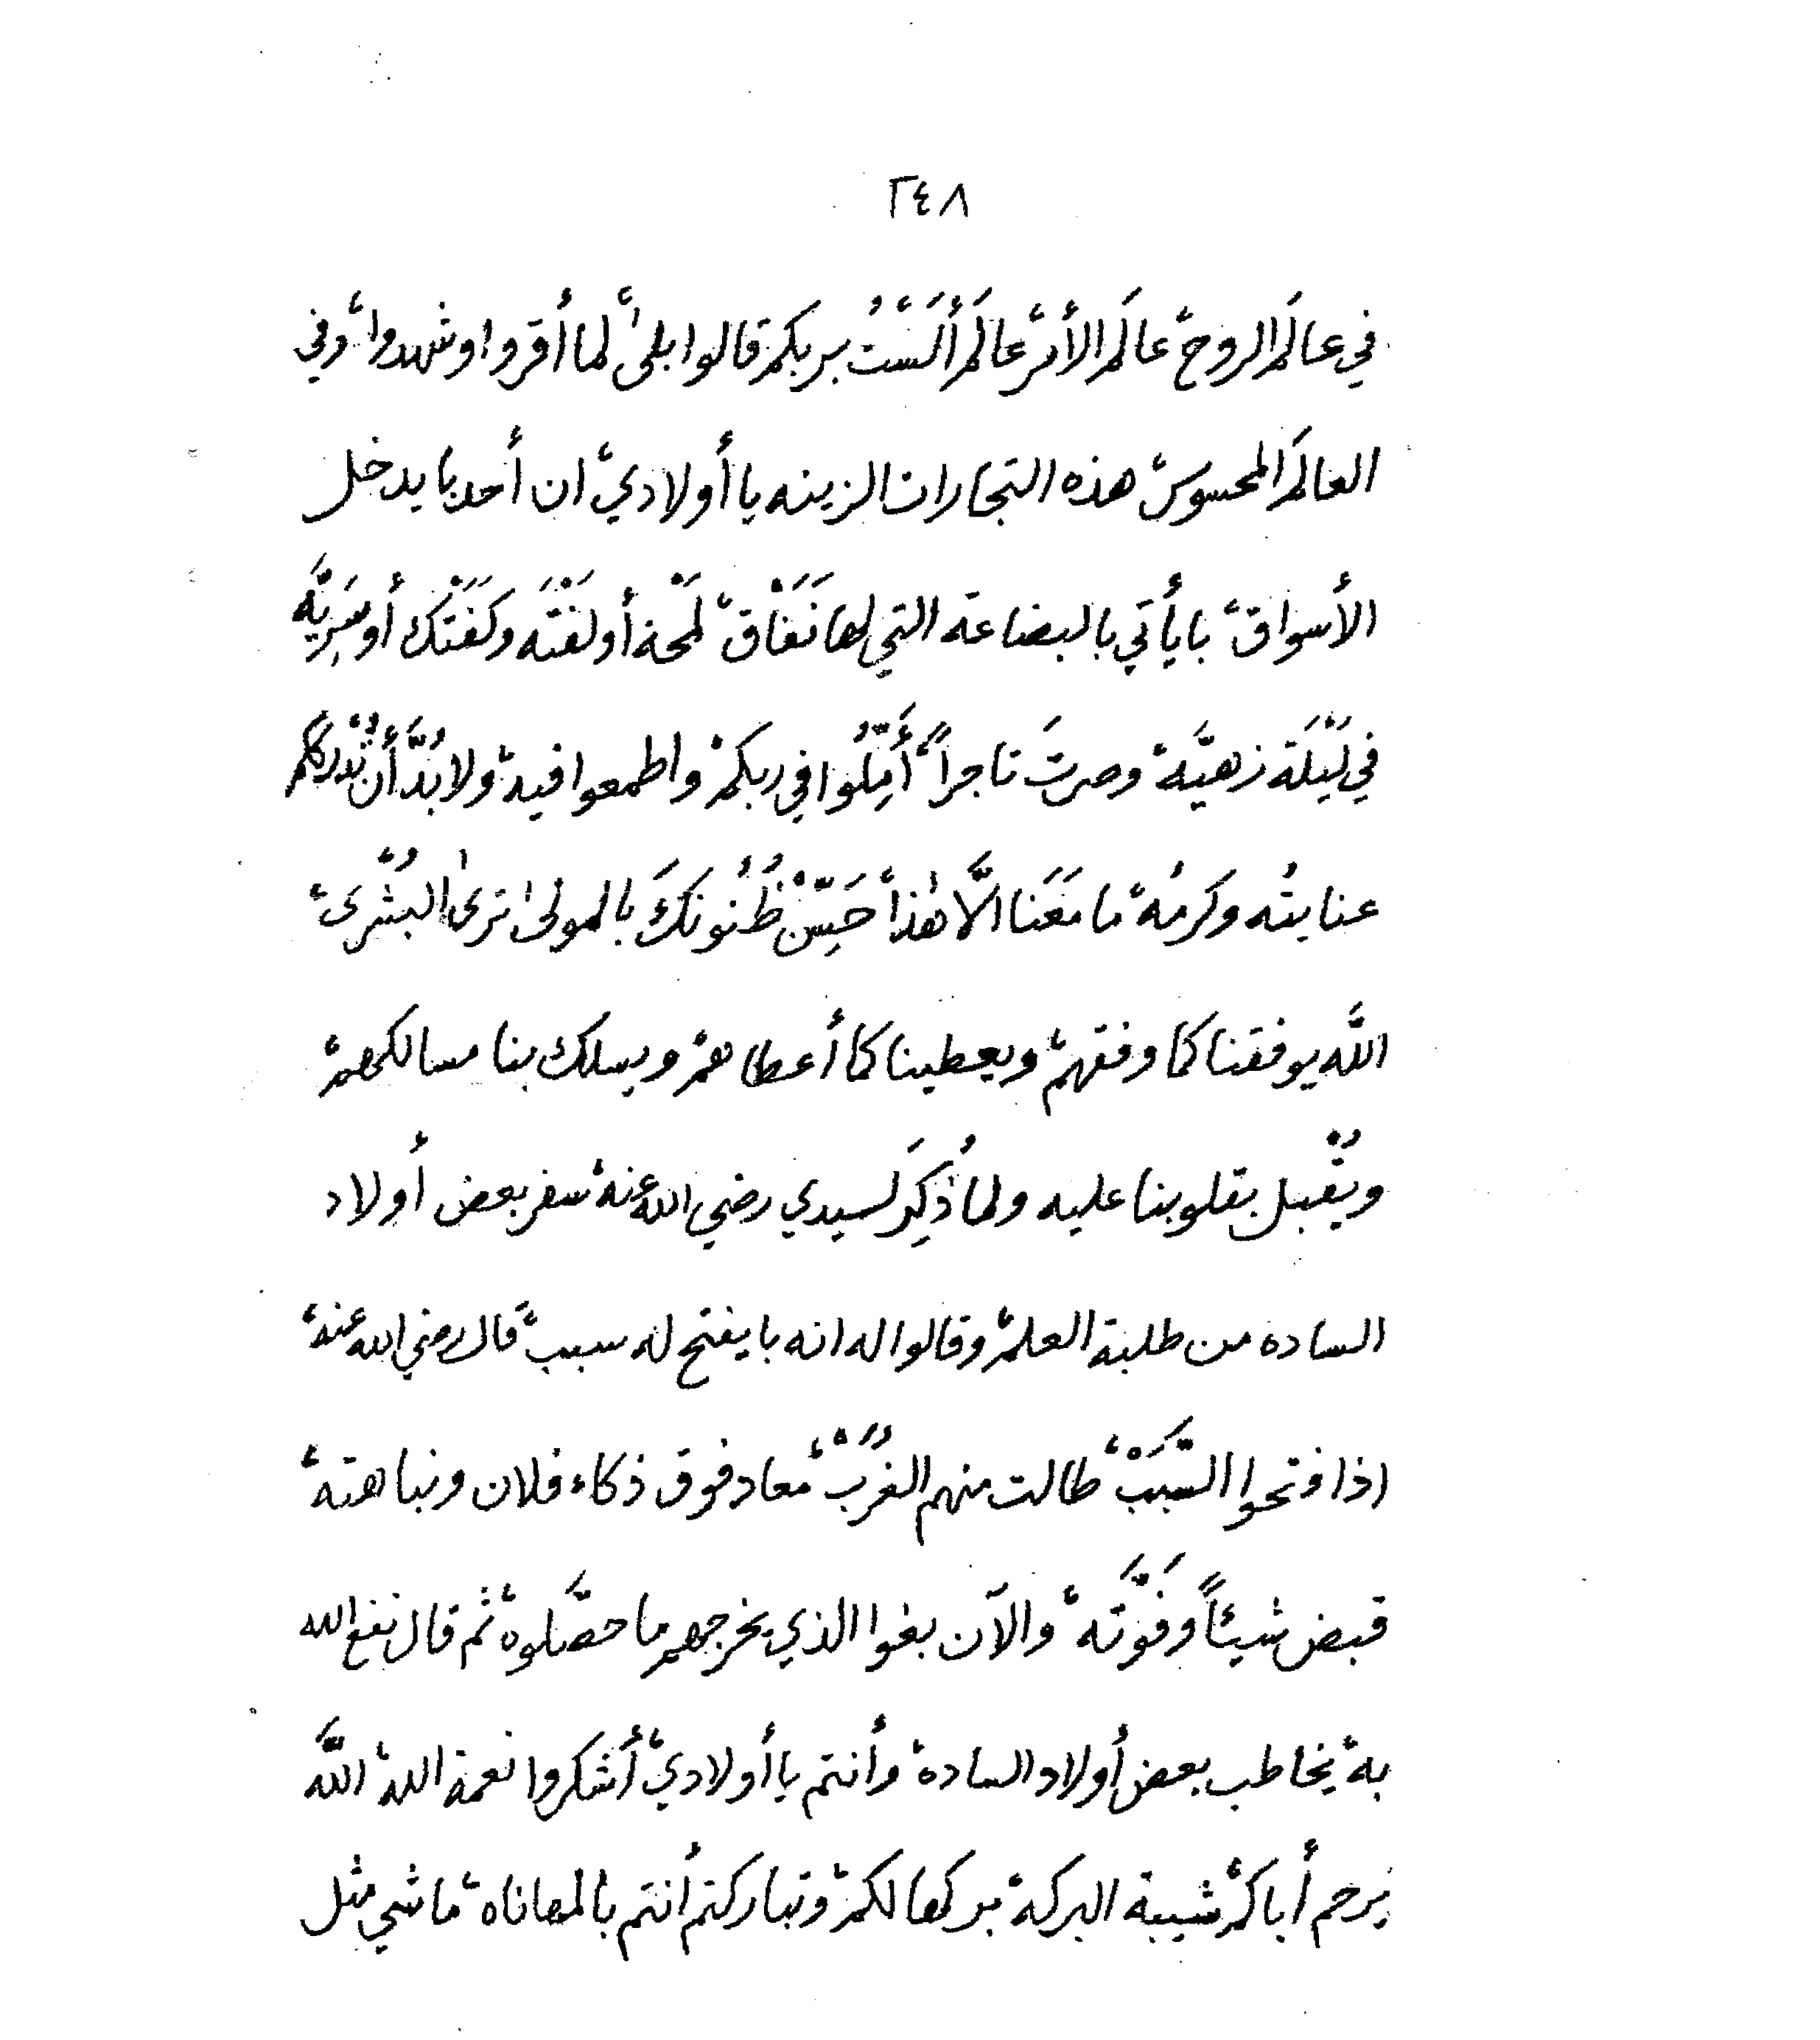 ٢٤٨
في عالَم الروح، عالَم الأمر، عالَم أَلَسْتُ بربكم قالوا بلى، لما أقروا وشهدوا، وفي
العالَم المحسوس، هذه التجارات الزينه يا أولادي، ان أحد با يدخل
الأسواق، با يأتي بالبضاعة التي لها نَفَاق، لَمْحة أو لَفْتَه وكَفَتْك أو سَرِيَّه
في لَيْلَة زهيَّة، وصرتَ تاجراً، أَمِّلُوا في ربكم، واطمعوا فيه، ولا بُدَّ أن تُدْرككم
عنايتُه وكرمُه، ما مَعَنا الَّا هٰذا، حَسِّنْ ظُنُونكَ بالمولىٰ ترىٰ البُشْرى،
اللَّه يوفقنا كما وفقهم، ويعطينا كما أعطاهم، ويسلك بنا مسالكهم،
ويُقْبل بقلوبنا عليه ولما ذُكِرَ لسيدي رضي الله عنه، سفر بعض أولاد
الساده من طلبة العلم، وقالوا له انه با يفتح له سبب، قال رضي الله عنه،
اذا فتحوا السَّبَبْ، طالت منهم الغُرَبْ، معاد فوق ذكاء فلان ونباهته،
قبض شيئاً وفَوَّتَه، والآن بغوا الذي يخرجهم ما حصَّلوه، ثم قال نفع الله
به، يخاطب بعض أولاد الساده، وأنتم يا أولادي، أشكروا نعمة الله، اللَّه
يرحم أباكم، شيبة البركة، بركها لكم، وتباركتم أنتم بالمعاناه، ما شي مثل